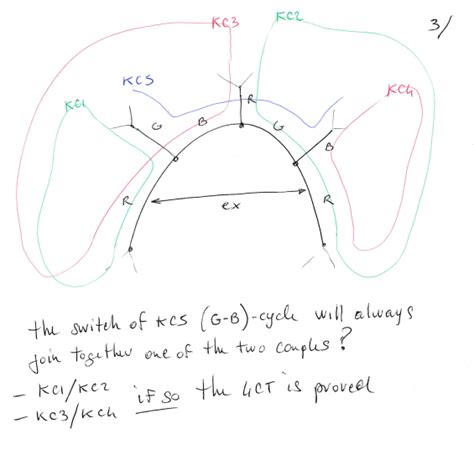 KC3
KC2
3/
KC5
KC1
KC4
R
G
B
G
B
R
R
ex
the switch of KC5 (G-B)-cycle will always
join together one of the two couples?
- KC1/KC2
- KC3/KC4
if so the 4CT is proved